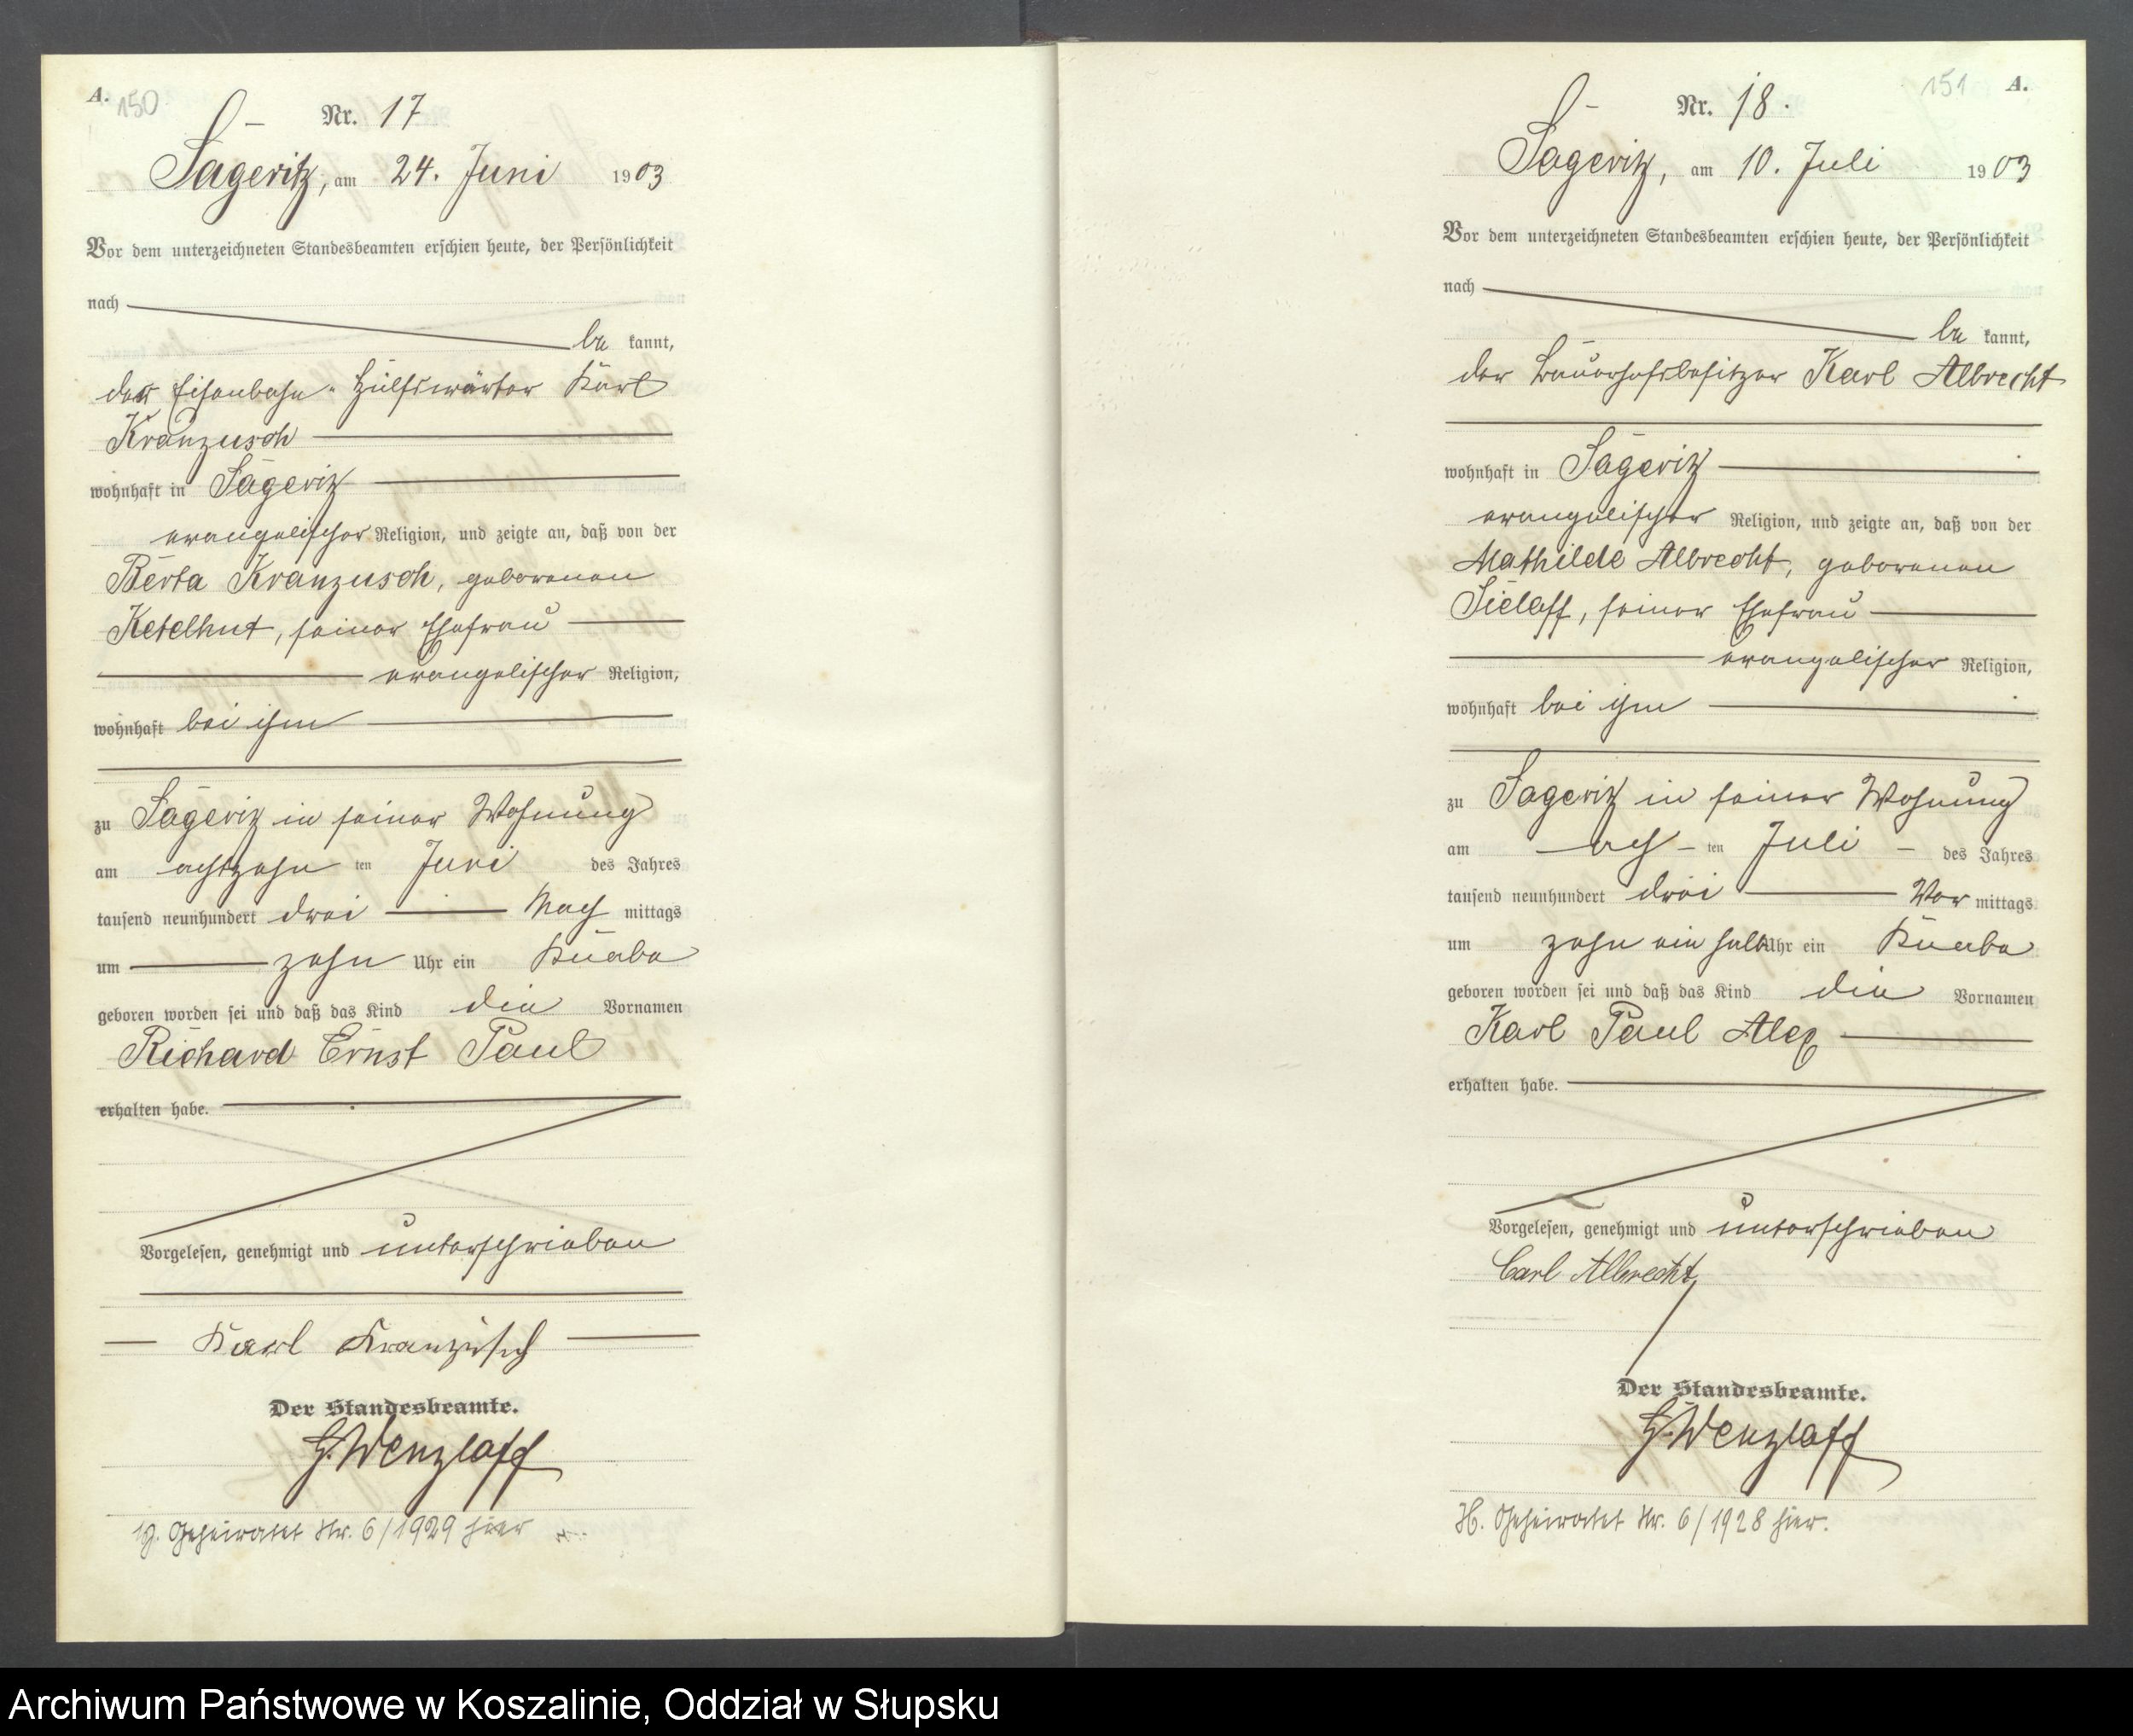 A.
150
Nr. 17
Sageritz, am 24. Juni 1903
Vor dem unterzeichneten Standesbeamten erschien heute, der Persönlichkeit
nach
be kannt,
der Eisenbahn-Hülfswärter Karl
Kranzusch
wohnhaft in Sageritz
evangelischer Religion, und zeigte an, daß von der
Berta Kranzusch, geborenen
Ketelhut, seiner Ehefrau
evangelischer Religion,
wohnhaft bei ihm
zu Sageritz in seiner Wohnung
am achtzehn ten Juni des Jahres
tausend neunhundert drei Nach mittags
um zehn Uhr ein Knabe
geboren worden sei und daß das Kind die Vornamen
Richard Ernst Paul
erhalten habe.
Vorgelesen, genehmigt und unterschrieben
Karl Kranzusch
Der Standesbeamte.
G. Wenzlaff
Geheiratet Nr. 6/1929 hier
151 A.
Nr. 18.
Sageritz, am 10. Juli 1903
Vor dem unterzeichneten Standesbeamten erschien heute, der Persönlichkeit
nach
be kannt,
der Bauerhofsbesitzer Karl Albrecht
wohnhaft in Sageritz
evangelischer Religion, und zeigte an, daß von der
Mathilde Albrecht, geborenen
Sielaff, seiner Ehefrau
evangelischer Religion,
wohnhaft bei ihm
zu Sageritz in seiner Wohnung
am ach ten Juli des Jahres
tausend neunhundert drei Vor mittags
um zehn ein halb Uhr ein Knabe
geboren worden sei und daß das Kind die Vornamen
Karl Paul Alex
erhalten habe.
Vorgelesen, genehmigt und unterschrieben
Carl Albrecht
Der Standesbeamte.
G. Wenzlaff
H. Geheiratet Nr. 6/1928 hier.
Archiwum Państwowe w Koszalinie, Oddział w Słupsku